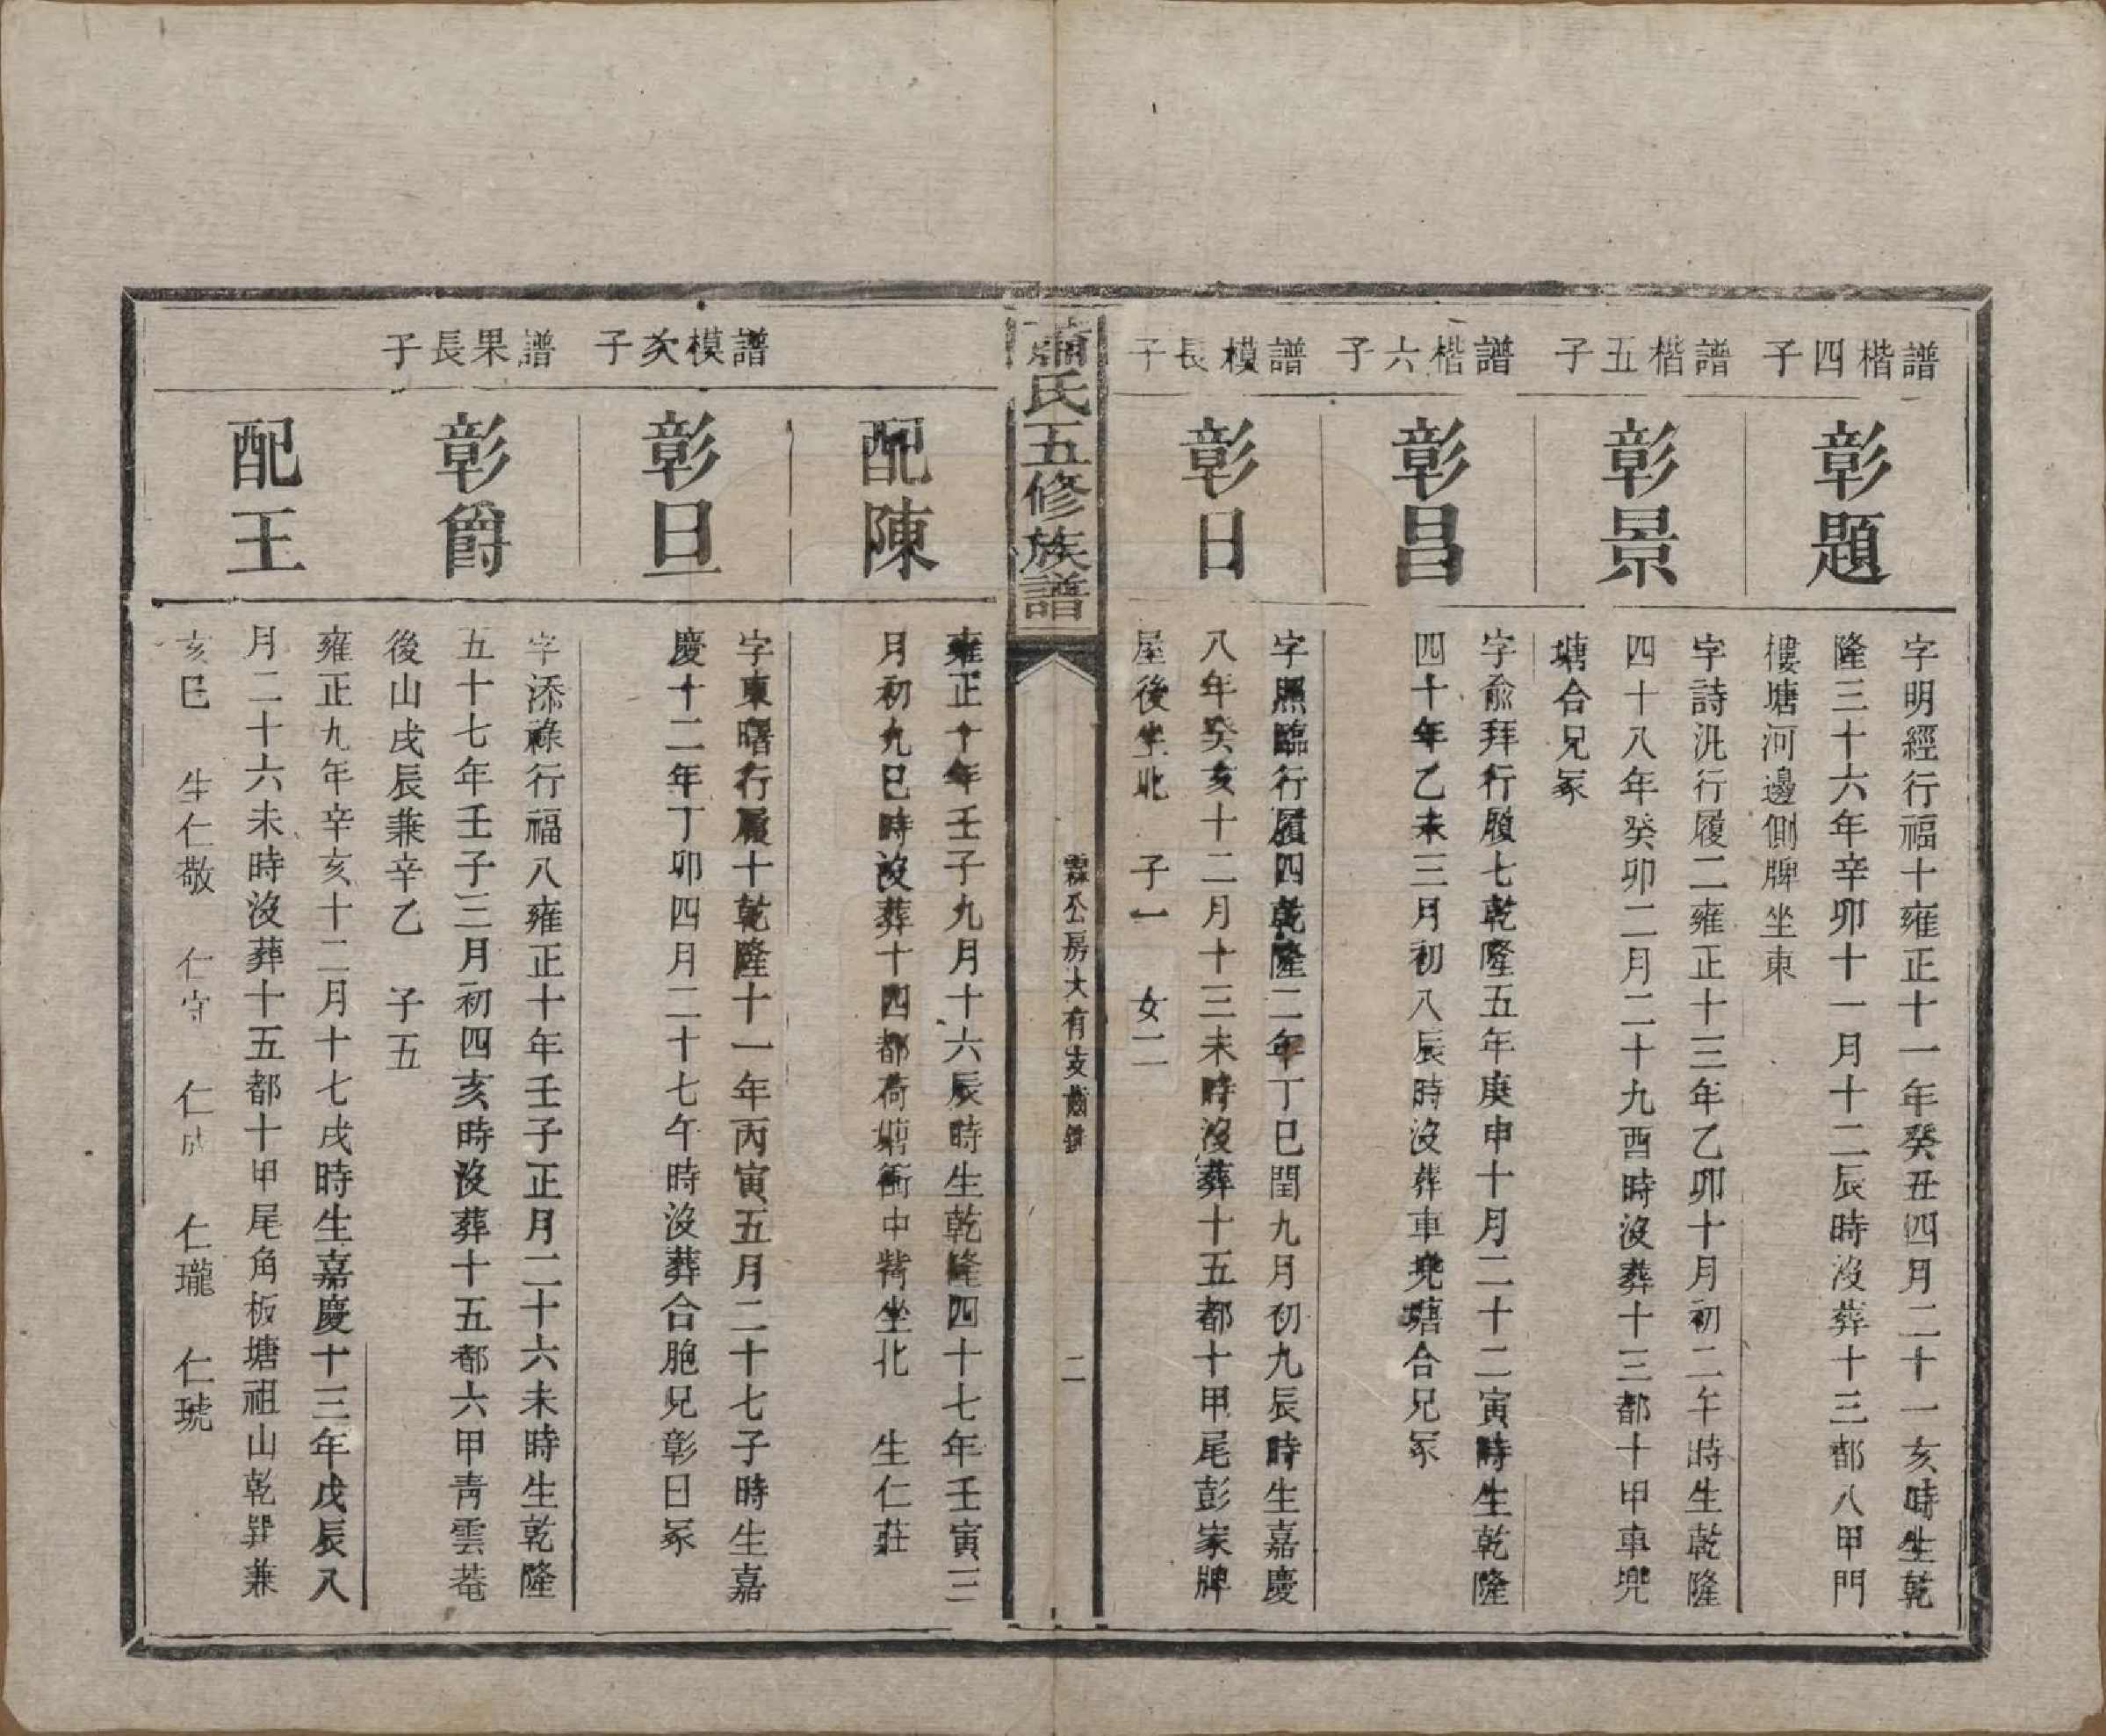 譜楷四子
彰題
字明經行福十雍正十一年癸丑四月二十一亥時生乾
隆三十六年辛卯十一月十二辰時沒葬十三都八甲門
樓塘河邊側牌坐東
譜楷五子
彰景
字詩汎行履二雍正十三年乙卯十月初二午時生乾隆
四十八年癸卯二月二十九酉時沒葬十三都十甲車兜
塘合兄冢
譜楷六子
彰昌
字俞拜行履七乾隆五年庚申十月二十二寅時生乾隆
四十年乙未三月初八辰時沒葬車兜塘合兄冢
譜模長子
彰日
字照臨行履四乾隆二年丁巳閏九月初九辰時生嘉慶
八年癸亥十二月十三未時沒葬十五都十甲尾彭家牌
屋後坐北 子一 女二
蕭氏五修族譜
霖公房大有支齒錄
二
配陳
雍正十年壬子九月十六辰時生乾隆四十七年壬寅三
月初九巳時沒葬十四都荷塘衝中嘴坐北 生仁莊
譜模次子
彰旦
字東曙行履十乾隆十一年丙寅五月二十七子時生嘉
慶十二年丁卯四月二十七午時沒葬合胞兄彰日冢
譜果長子
彰爵
字添祿行福八雍正十年壬子正月二十六未時生乾隆
五十七年壬子三月初四亥時沒葬十五都六甲青雲菴
後山戌辰兼辛乙 子五
配王
雍正九年辛亥十二月十七戌時生嘉慶十三年戊辰八
月二十六未時沒葬十五都十甲尾角板塘祖山乾巽兼
亥巳 生仁敬 仁守 仁成 仁瓏 仁琥